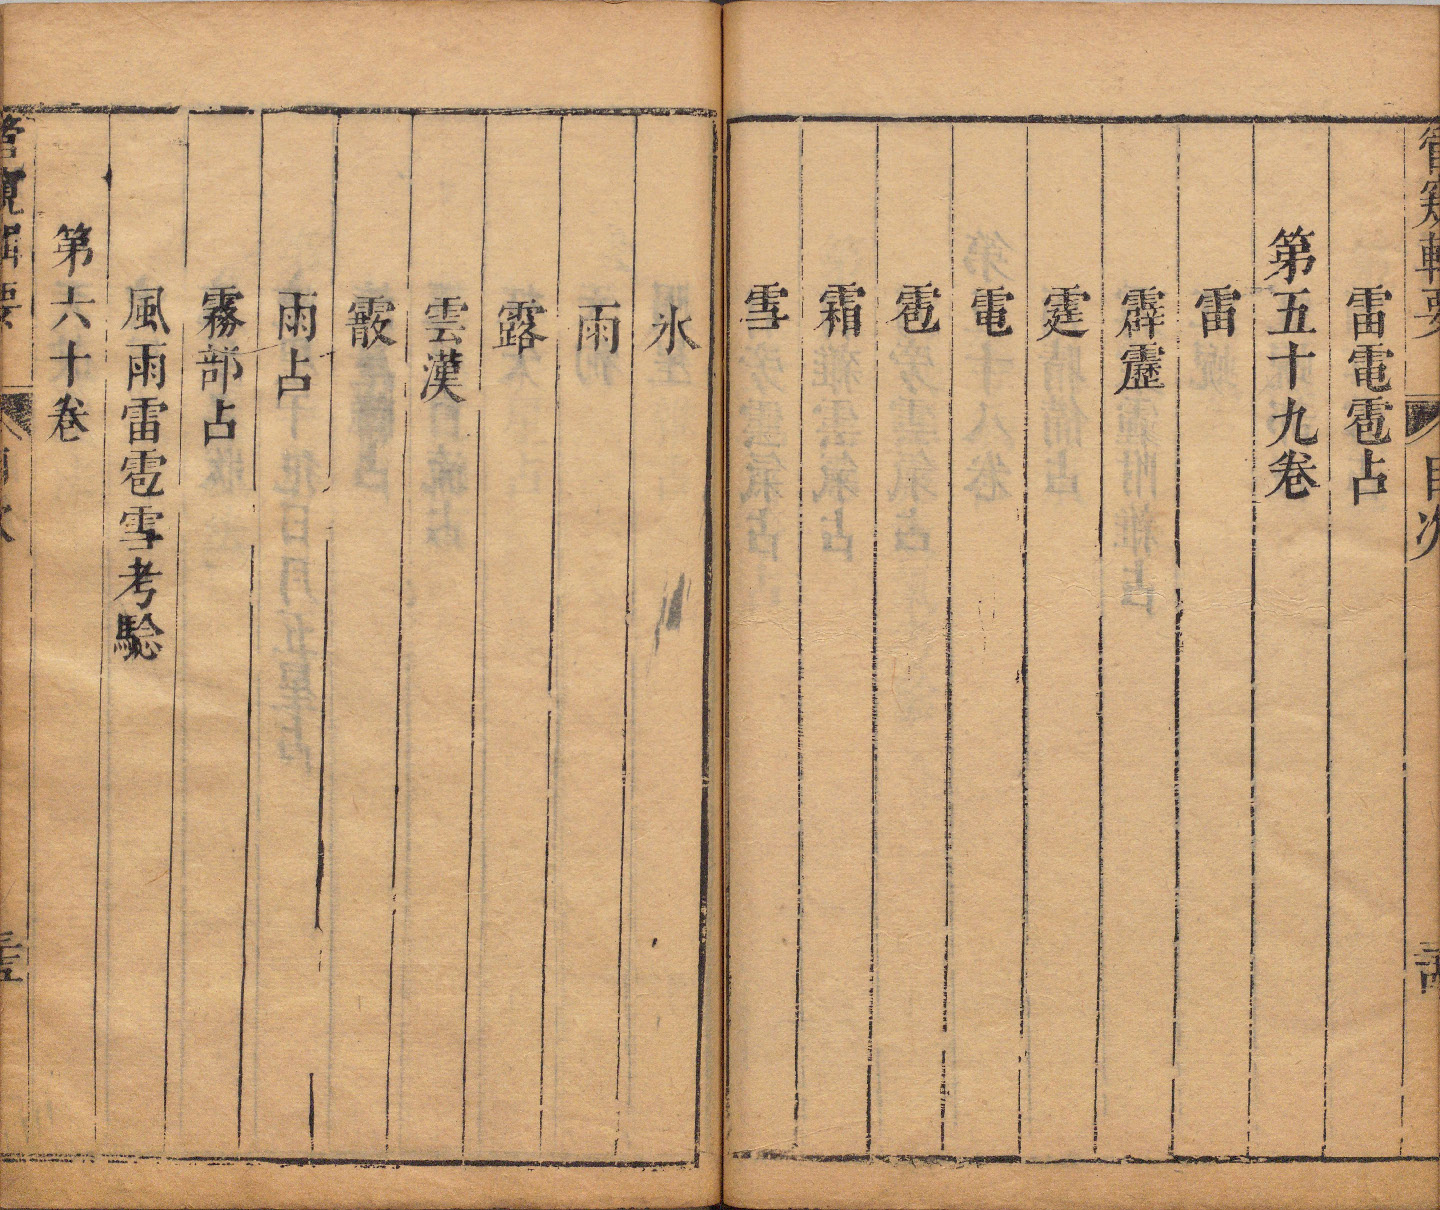 管窺輯要　目次
雷電雹占
第五十九卷
雷
霹靂
霆
電
雹
霜
雪
氷
雨
露
雲漢
霰
雨占
霧部占
風雨雷雹雪考驗
第六十卷
管窺輯要